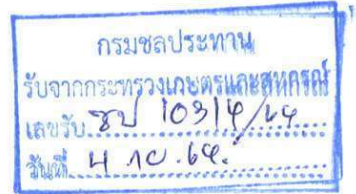 กรมชลประทาน
รับจากกระทรวงเกษตรและสหกรณ์
เลขรับ ชป 10314/64
วันที่ 4 กย. 64.